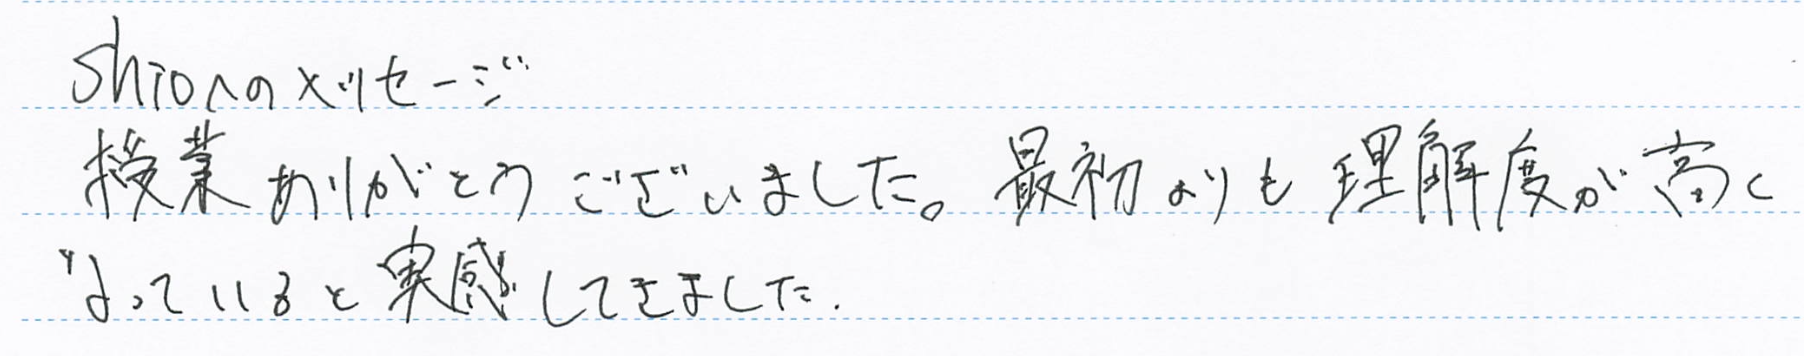 Shioへのメッセージ
授業ありがとうございました。最初よりも理解度が高く
なっていると実感してきました.